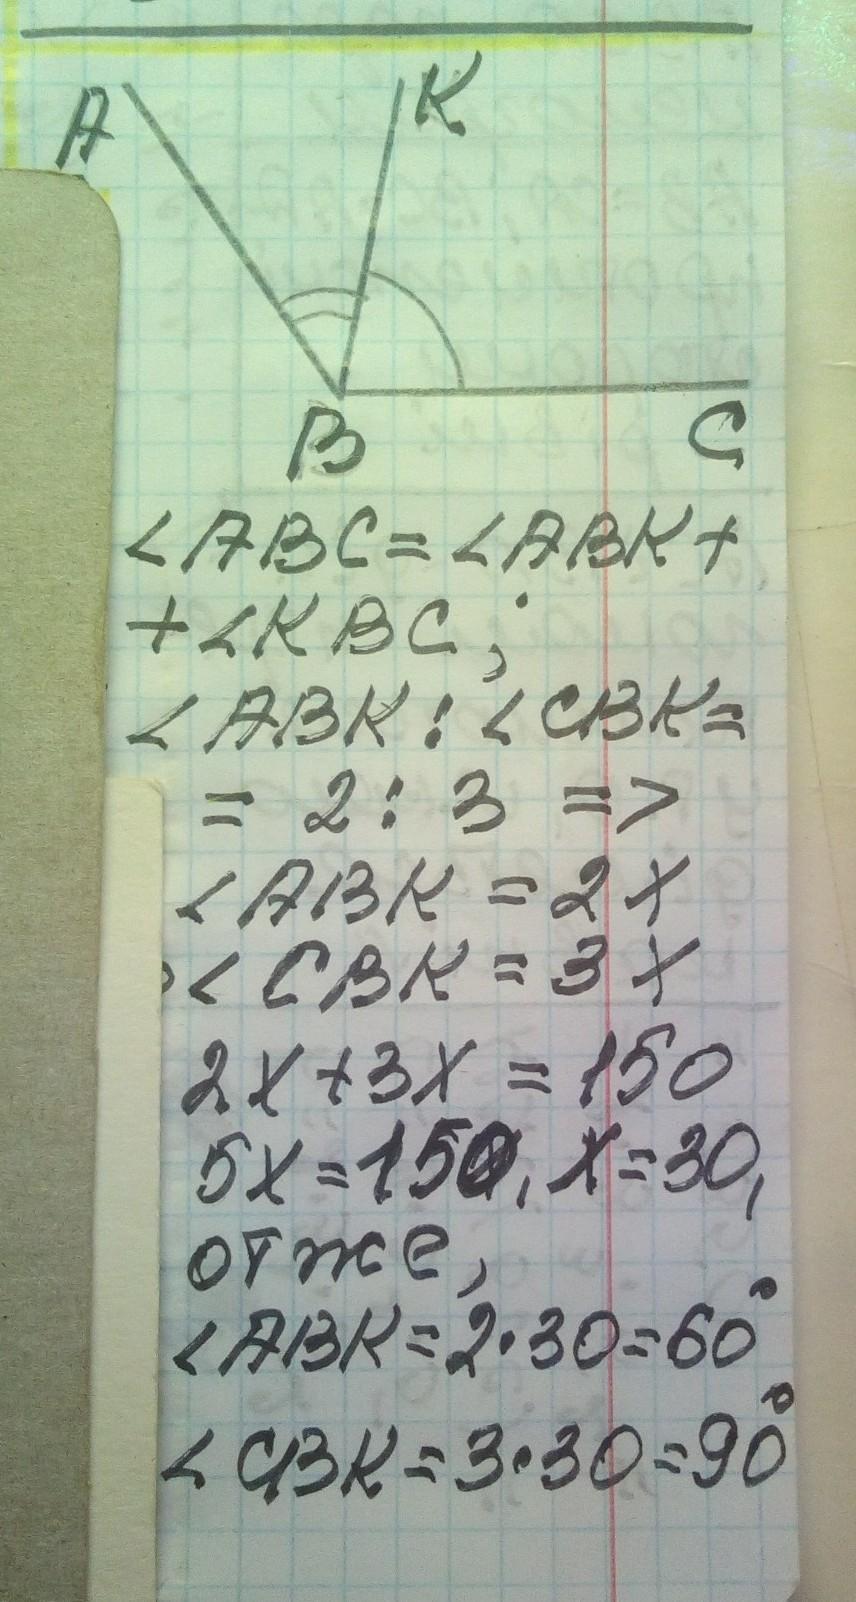 A
K
B
C
∠ABC=∠ABK+
+∠KBC;
∠ABK:∠CBK=
=2:3 =>
∠ABK=2x
∠CBK=3x
2x+3x=150
5x=150, x=30,
отже,
∠ABK=2·30=60°
∠CBK=3·30=90°